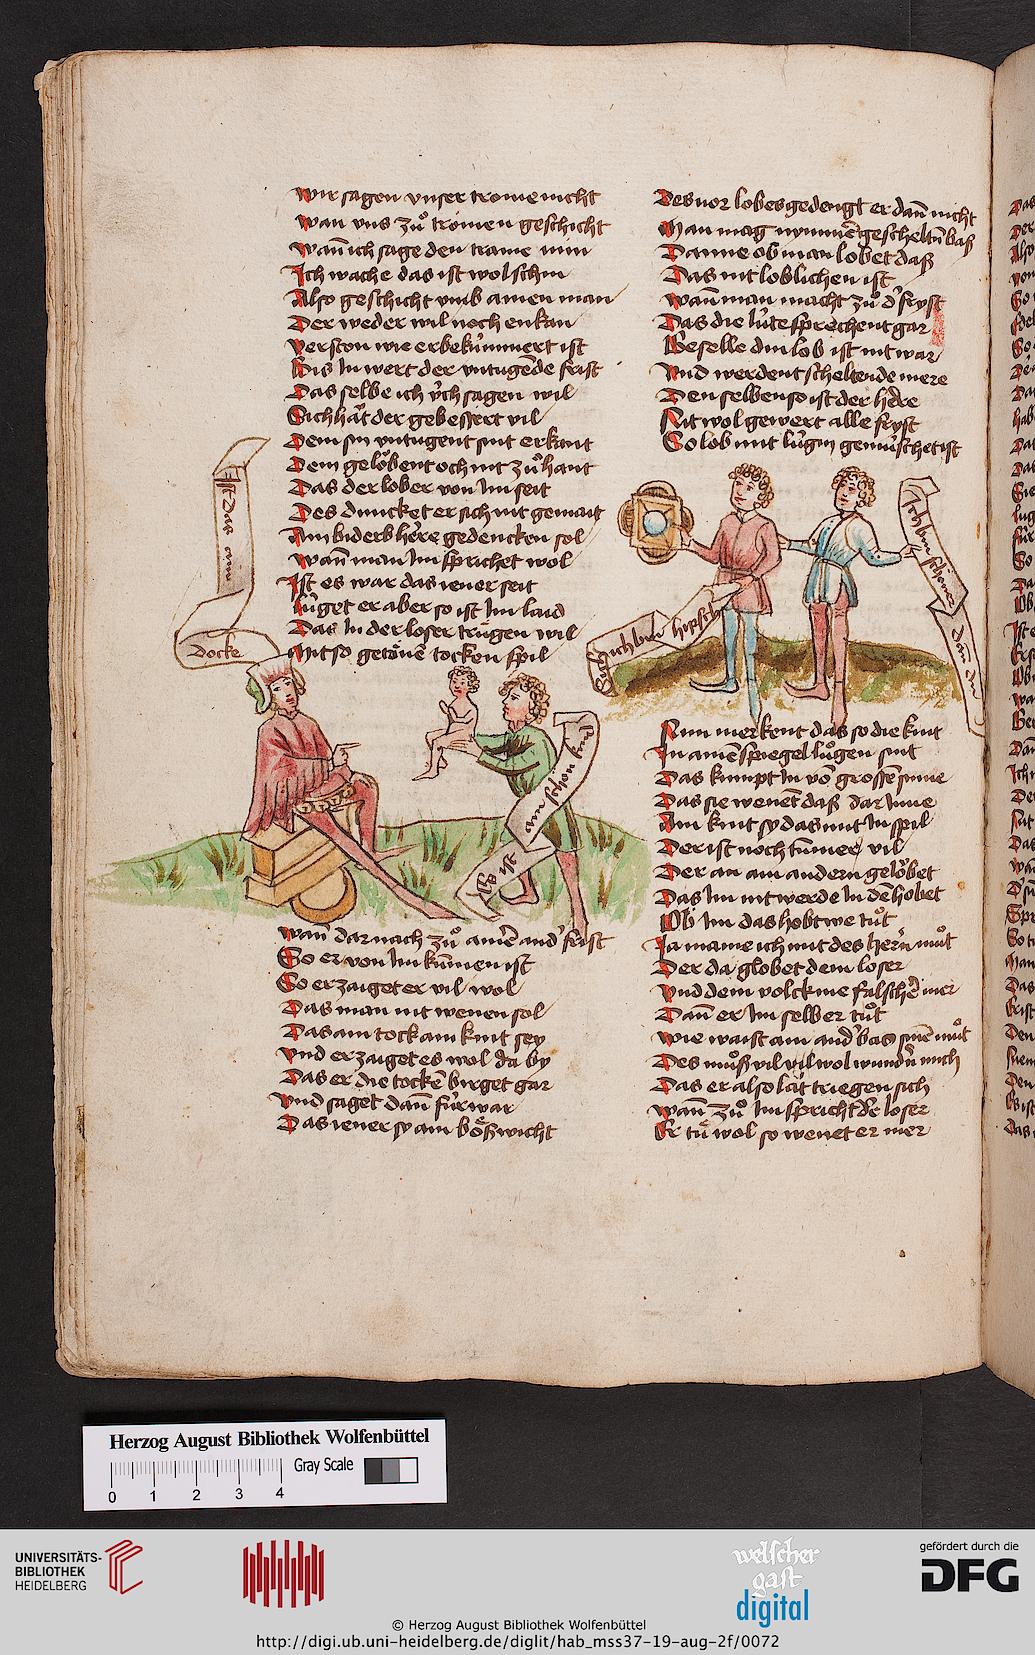 wir sagen vnser trome nicht
wan vns zů tromen geschicht
Wan̄ ich sage den trame min
Ich wache das ist wol schin
Also geschicht vmb ainen man
Der weder wil noch enkan
verston wie er bekúmmert ist
Bis In wert der vntugēde frist
Das selbe ich v́ch sagen wil
Sich hāt der gebessert vil
Dem sin vntugent sint erkant
Dem gelőbent och nit zů hant
Das der lober von Im seit
Des duncket er sich nit gemait
Ain biderb h're gedencken sol
Wan̄ man Im sprichet wol
Ist es war das iener seit
lúget er aber so ist Im laid
Das In der loser trúgen wil
Mit so getőnē tocken spil
Ist Das nun
docke
ain schön kint
wan̄ dar nach zů amē and' frist
So er von Im kūmen ist
So er zaiget er vil wol
Das man nit wenen sol
Das ain tock ain kint sey
vnd erzaiget es wol da by
Das er die tockē birget gar
vnd saget dan̄ fúrwar
Das iener sy ain bőswicht
Des nor lobes gedengt er dan̄ nicht
Man mag nymmē gescheltn̄ bas
Danne ob man lobet das
Das nit loblichen ist
Wan̄ man macht zů d' fryst
Das die lúte sprechent gar
Geselle din lob ist nit war
Vnd werdent scheltende mere
Den selben so ist der h're
Nit wol gewert alle fryst
So lob mit lúgin gemúschet ist
ich bin hopsch
ich bin schöner
dan du
Nun merkent das so die kint
In ainē spiegel lůgen sint
Das kumpt In vō grossē sinne
Das sie wenēt das dar Inne
Ain kint sy das mit In spil
Der ist noch tūmer vil
Der an ain andern gelőbet
Das Im nit werde In dē hobet
Ob Im das hobt we tůt
Ia maine ich mit des hern̄ můt
Der da globet dem loser
vnd dem volck ine falschē mer
Dan̄ er Im selber tůt
wie waist ain and' bas sinē můt
Des můs vil vil wol wundn̄ mich
Das er also lāt triegen sich
wan̄ zů Im spricht d'e loser
Er tů wol so wenet er mer
Herzog August Bibliothek Wolfenbüttel
Gray Scale
0 1 2 3 4
UNIVERSITÄTS-
BIBLIOTHEK
HEIDELBERG
welscher
gast
digital
gefördert durch die
DFG
© Herzog August Bibliothek Wolfenbüttel
http://digi.ub.uni-heidelberg.de/diglit/hab_mss37-19-aug-2f/0072